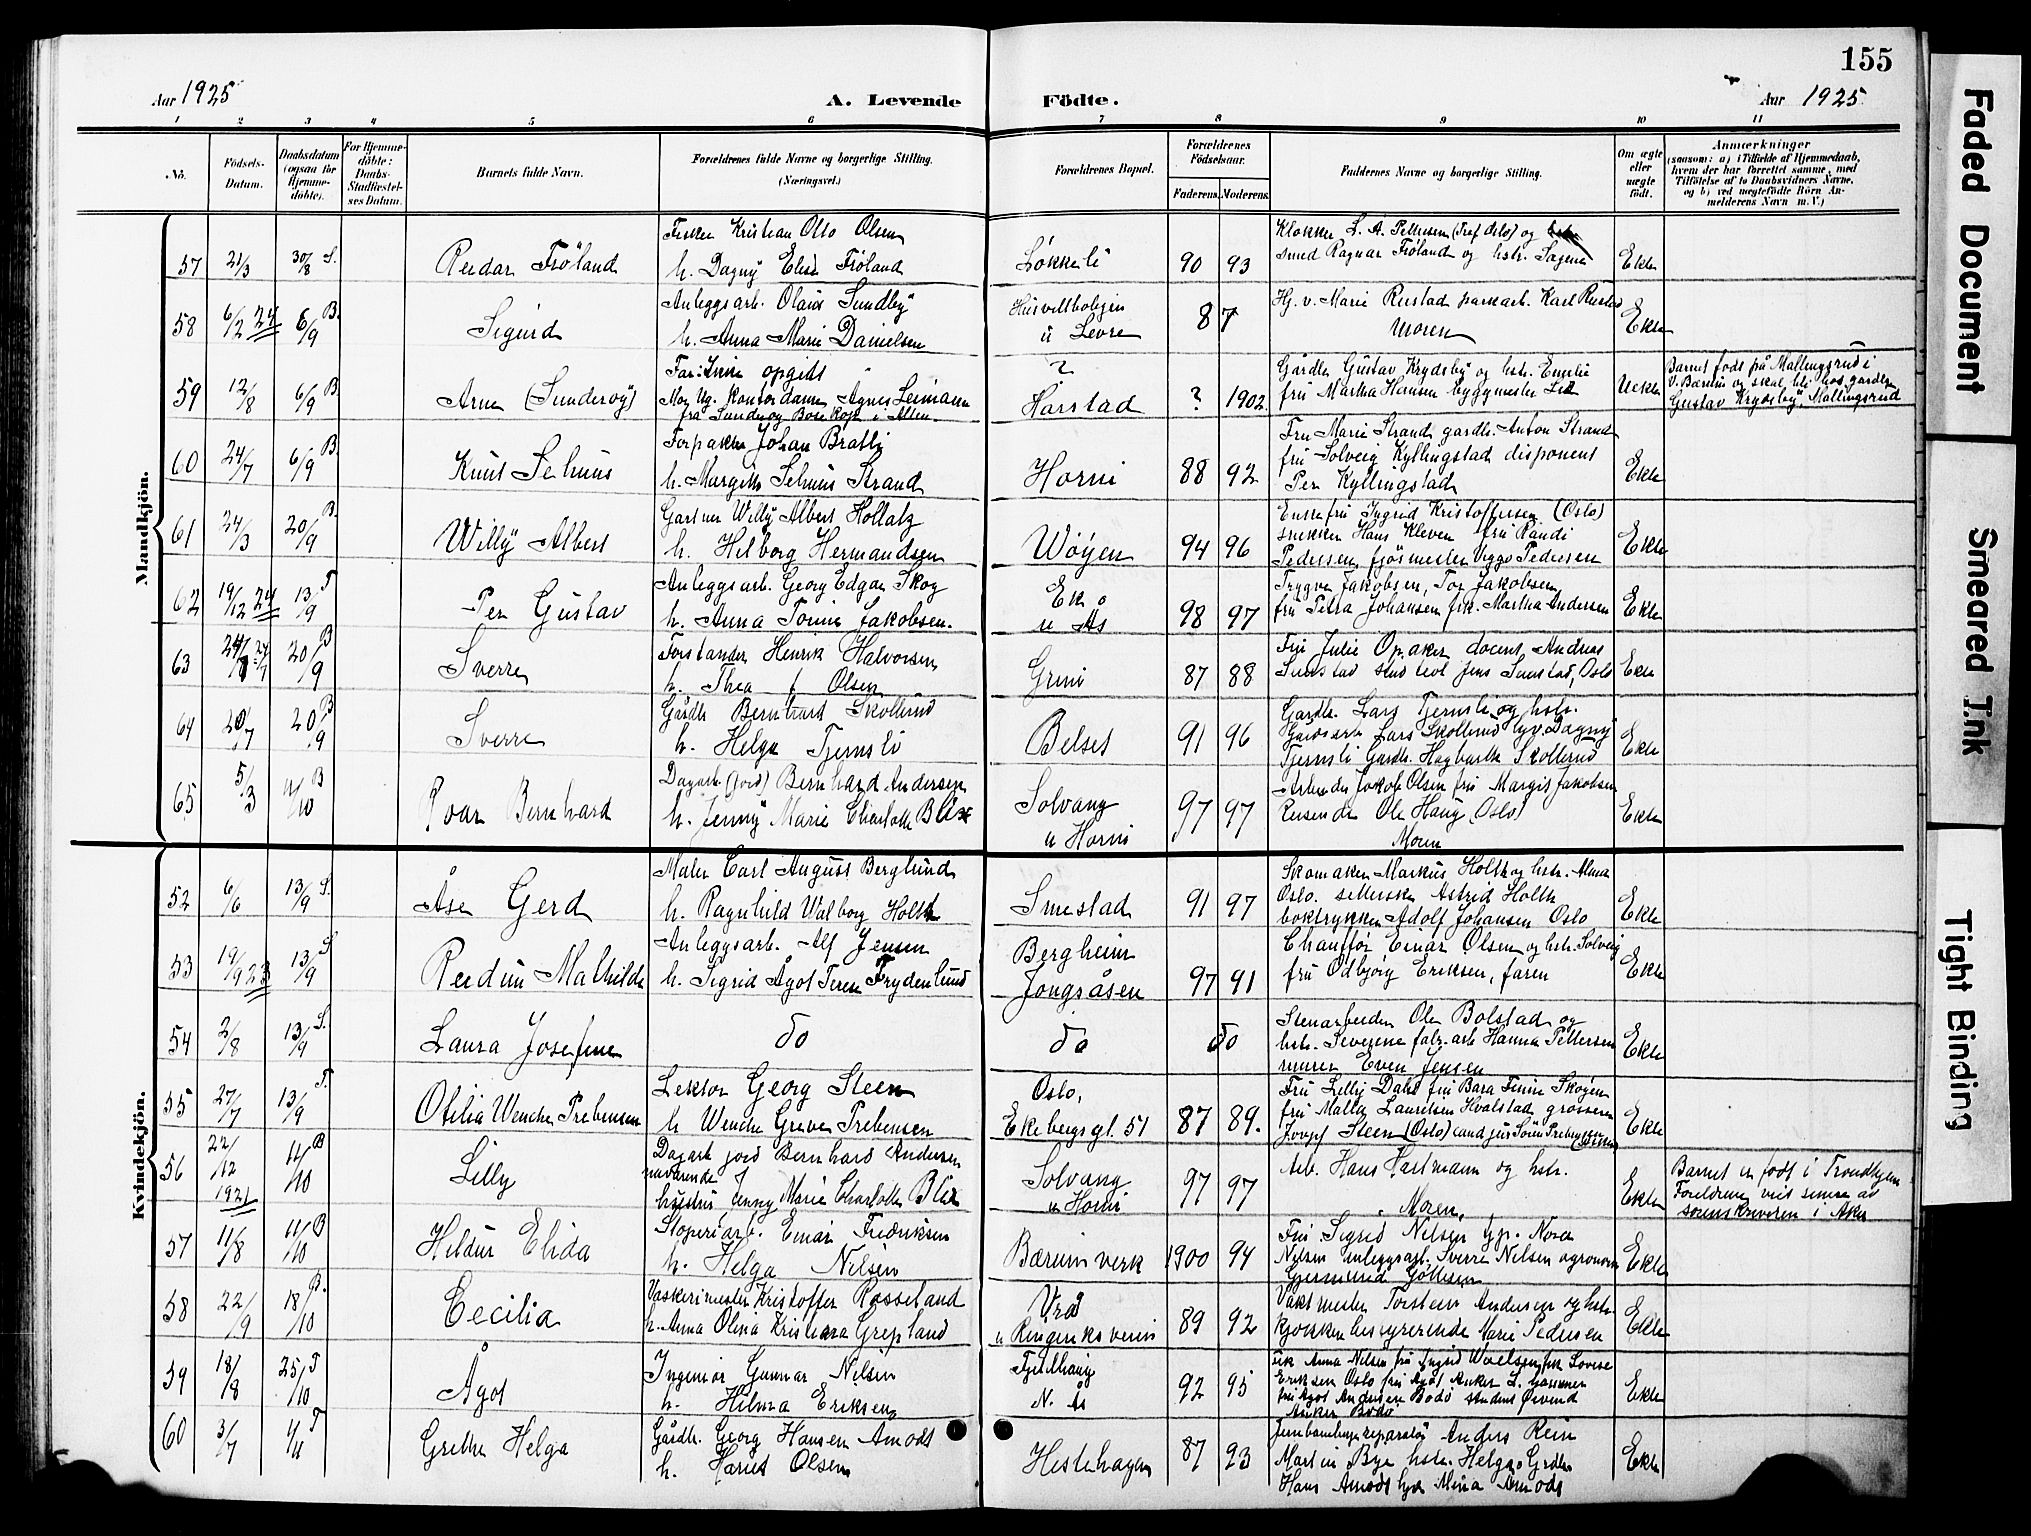 155
Aar 1925
A. Levende
Födte.
Aar 1925
1 2 3 4 5 6 7 8 9 10 11
No.
Födsels-
Datum.
Daabsdatum
(ogsaa for
Hjemme-
döbte).
For Hjemme-
döbte:
Daabs-
Stadfæstel-
ses Datum.
Barnets fulde Navn.
Forældrenes fulde Navne og borgerlige Stilling.
(Næringsvei.)
Forældrenes Bopæl.
Forældrenes
Födselsaar.
Faderens.
Moderens.
Faddernes Navne og borgerlige Stilling.
Om ægte
eller
uægte
födt.
Anmærkninger
(saasom: a) i Tilfælde af Hjemmedaab,
hvem der har forrettet samme, med
Tilföielse af to Daabsvidners Navne,
og b) ved uægtefödte Börn An-
melderens Navn m. V.)
Mandkjön.
57 21/3 30/8 S. Reidar Fröland
Fisker Kristian Otto Olsen
h. Dagny Elise Fröland
Løkkeli 90 93
smed Ragnar Fröland og hstr. Sagene
Ekte
58 6/2 24 6/9 B. Sigurd
Anleggsarb. Olaus Sundby
h. Anna Marie Danielsen
Husvillboligen
u Levre
87
Hj. v. Marie Rustad parkarb. Karl Rustad
Moren
Ekte
59 12/8 6/9 B. Arne (Sundevoy)
Far: Inne opgitt
Mor Ug. Kontordame Agnes Leimann
fra Sundevog Bosekop i Alten
?
Harstad ? 1902
Gårdbr. Gustav Krydsby og hstr. Emilie
fru Martha Hansen byggmester
Uekte
Barnet født på Mallingsrud i
V. Bærum og skal bli hos gårdbr.
Gustav Krydsby, Mallingsrud
60 24/7 6/9 B. Knut Selmus
Forpakter Johan Bratli
h. Margith Selmus Strand
Horni 88 92
Fru Marie Strand gardbr. Anton Strand
fru Solveig Kyllingstad disponent
Per Kyllingstad
Ekte
61 24/3 20/9 B. Willy Albert
Gartner Willy Albert Hollatz
h. Hilborg Hermandsen
Wøyen 94 96
Enkefru Ingrid Kristoffersen (Oslo)
snekker Hans Kleven fru Randi
Pedersen fjøsmester Viggo Pedersen
Ekte
62 19/12 24 13/9 T Per Gustav
Anleggsarb. Georg Edgar Skog
h. Anna Tomine Jakobsen.
Ek
u Ås
98 97
Trygve Jakobsen, Tor Jakobsen
fru Petra Johansen frk. Martha Andersen
Ekte
63 20/9 B Sverre
Forstander Henrik Halvorsen
h. Thea f Olsen
Grini 87 88
Fru Julie Opaker docent Andreas
Sunstad stud teol Jens Sunstad, Oslo
Ekte
64 20/7 20/9 B Sverre
Gårdbr Bernhard Skollerud
h. Helga Tjernsli
Belset 91 96
Gardbr. Lars Tjernsli og hstr.
Gårdsarb Lars Skollerud hj.v. Dagny
Tjernsli Gardbr. Hagbarth Skollerud
Ekte
65 5/3 11/10 B Roar Bernhard
Dagarb (jord) Bernhard Andersen
h. Jenny Marie Charlotte Blix
Solvang
u Horni
97 97
Arbeider Jakob Olsen fru Margit Jakobsen
Reisende Ole Haug (Oslo)
Moren
Ekte
Kvindekjön.
52 6/6 13/9 S. Åse Gerd
Maler Carl August Berglund
h. Ragnhild Walborg Holth
Smestad 91 97
Skomaker Markus Holth og hstr. Alma
Oslo. setterske Astrid Holth
boktrykker Adolf Johansen Oslo
Ekte
53 19/9 23 13/9 S Reidun Mathilde
Anleggsarb. Alf Jensen
h. Sigrid Ågot Terese Frydenlund
Bergheim
Jongsåsen
97 91
Chauffør Einar Olsen og hstr. Solveig
fru Odbjörg Eriksen, faren
Ekte
54 2/8 13/9 S. Laura Josefine
do
do
do
Stenarbeider Ole Bolstad og
hstr. Severine fabr.arb Hanna Pettersen
murer Even Jensen
Ekte
55 27/7 13/9 T. Otilia Wenche Prebensen
Lektor Georg Steen
h Wenche Greve Prebensen
Oslo,
Ekebergsgt. 51
87 89.
Fru Lilly Dahl fru Bara Finne Skøyen
fru Malla Lauritsen Hvalstad grosserer
Steen (Oslo) cand jur Prebensen
Ekte
56 22/12 1921 11/10 B Lilly
Dagarb jord Bernhard Andersen
nuværende
hustru Jenny Marie Charlotte Blix
Solvang
u Horni
97 97
Arb. Hans Hartmann og hstr.
Moren,
Ekte
Barnet er født i Trondhjem
Foreldrene viet senere av
sorenskriveren i Aker
57 11/8 11/10 B Hildur Elida
Støperiarb. Einar Fredriksen
h. Helga Nilsen
Bærum verk 1900 94
Fru Sigrid Nilsen tjp. Nora
Nilsen anleggsarb. Sverre Nilsen agronom
Gjermund
Ekte
58 22/9 18/10 B. Cecilia
Vaskerimester Kristoffer Rosseland
h. Anna Olina Kristiana Grepland
Vrå
u Ringeriksveien
89 92
Vaktmester Torstein Andersen og hstr.
kjøkkenbestyrerinde Marie Pedersen
Ekte
59 18/8 25/10 T Ågot
Ingeniør Gunnar Nilsen
h. Hilma Eriksen
Fjellhaug
N. Ås
92 95
frk Anna Nilsen fru Ingrid frk Lovise
Eriksen Oslo fru Ågot Anker
fru Ågot Andersen Bodø student Øivind
Anker Bodø
Ekte
60 3/7 1/11 T Grethe Helga
Gårdbr. Georg Hansen Amodt
h. Hariet Olsen
Hestehagen 87 93
Jernbanelinjereparatør Anders Rein
Martin Bye hstr. Helga, Grdbr
Hans Amodt hjv Mina Amodt
Ekte
Faded Document
Smeared Ink
Tight Binding